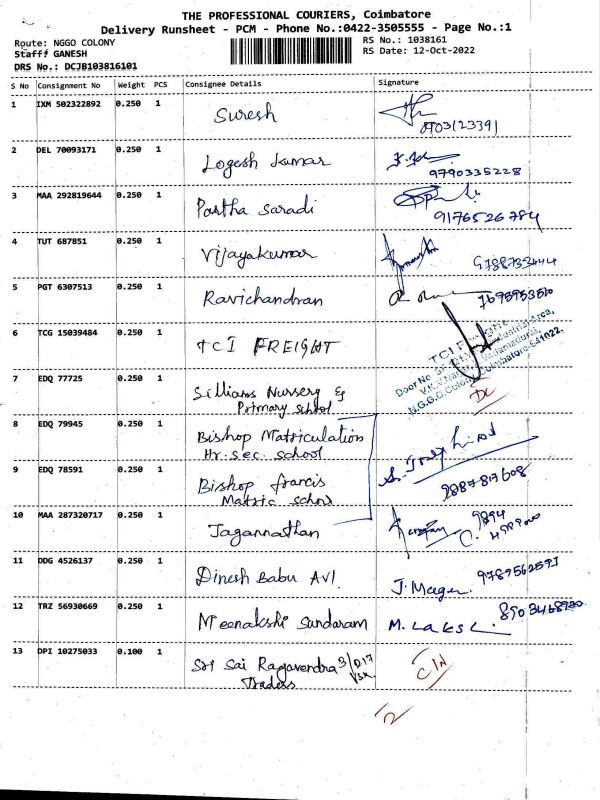 THE PROFESSIONAL COURIERS, Coimbatore
Delivery Runsheet - PCM - Phone No.:0422-3505555 - Page No.:1
Route: NGGO COLONY
RS No.: 1038161
Stafff GANESH
RS Date: 12-Oct-2022
DRS No.: DCJB103816101
S No Consignment No Weight PCS Consignee Details Signature
1 IXM 502322892 0.250 1 Suresh
8903123391
2 DEL 70093171 0.250 1 Logesh Kumar
9790335228
3 MAA 292819644 0.250 1 Partha Saradi
9176526784
4 TUT 687851 0.250 1 Vijayakumar
5 PGT 6307513 0.250 1 Ravichandran
6 TCG 15039484 0.250 1 TCI FREIGHT
TCI
Door No.
N.G.G.O.Colony, Coimbatore-641022.
7 EDQ 77725 0.250 1 Silliams Nursery &
Primary school
DC
8 EDQ 79945 0.250 1 Bishop Matriculation
Hr. sec. school
9 EDQ 78591 0.250 1 Bishop francis
Matric school
9887817608
10 MAA 287320717 0.250 1 Jagannathan
9894
11 DDG 4526137 0.250 1 Dinesh Babu AVL.
9789562597
12 TRZ 56930669 0.250 1 Meenakshi Sundaram M. Laksh
13 DPI 10275033 0.100 1 Sri Sai Ragavendra 3/017
Traders
C/N
12